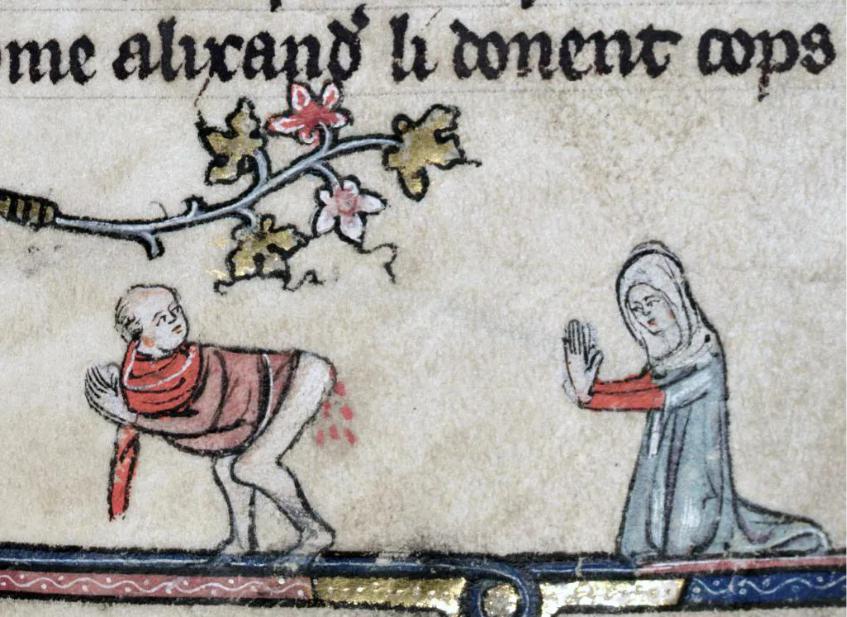 me alixand᷒ li donent cops